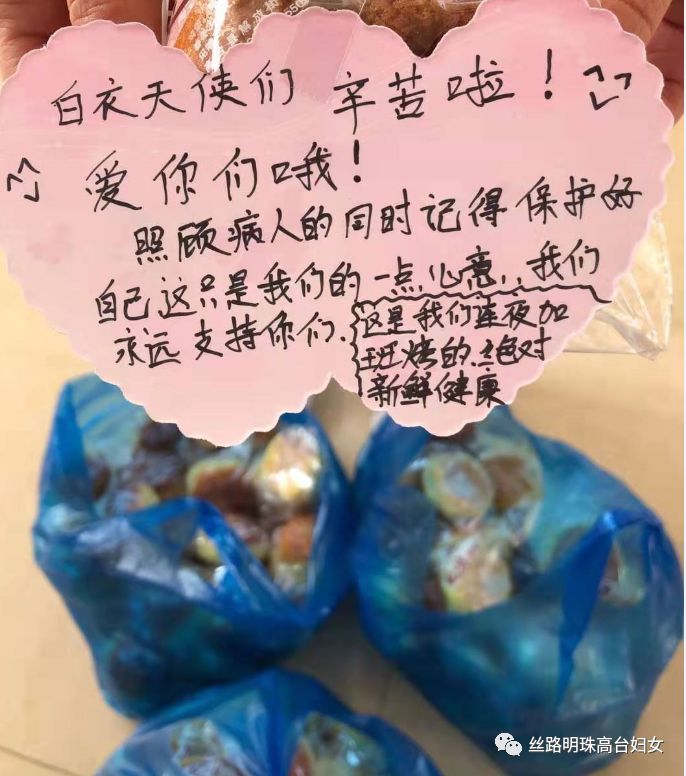 白衣天侠们 辛苦啦！
爱你们哦！
照顾病人的同时记得保护好
自己这只是我们的一点心意,,我们
永远支持你们.
这是我们连夜加
班烤的.绝对
新鲜健康
丝路明珠高台妇女